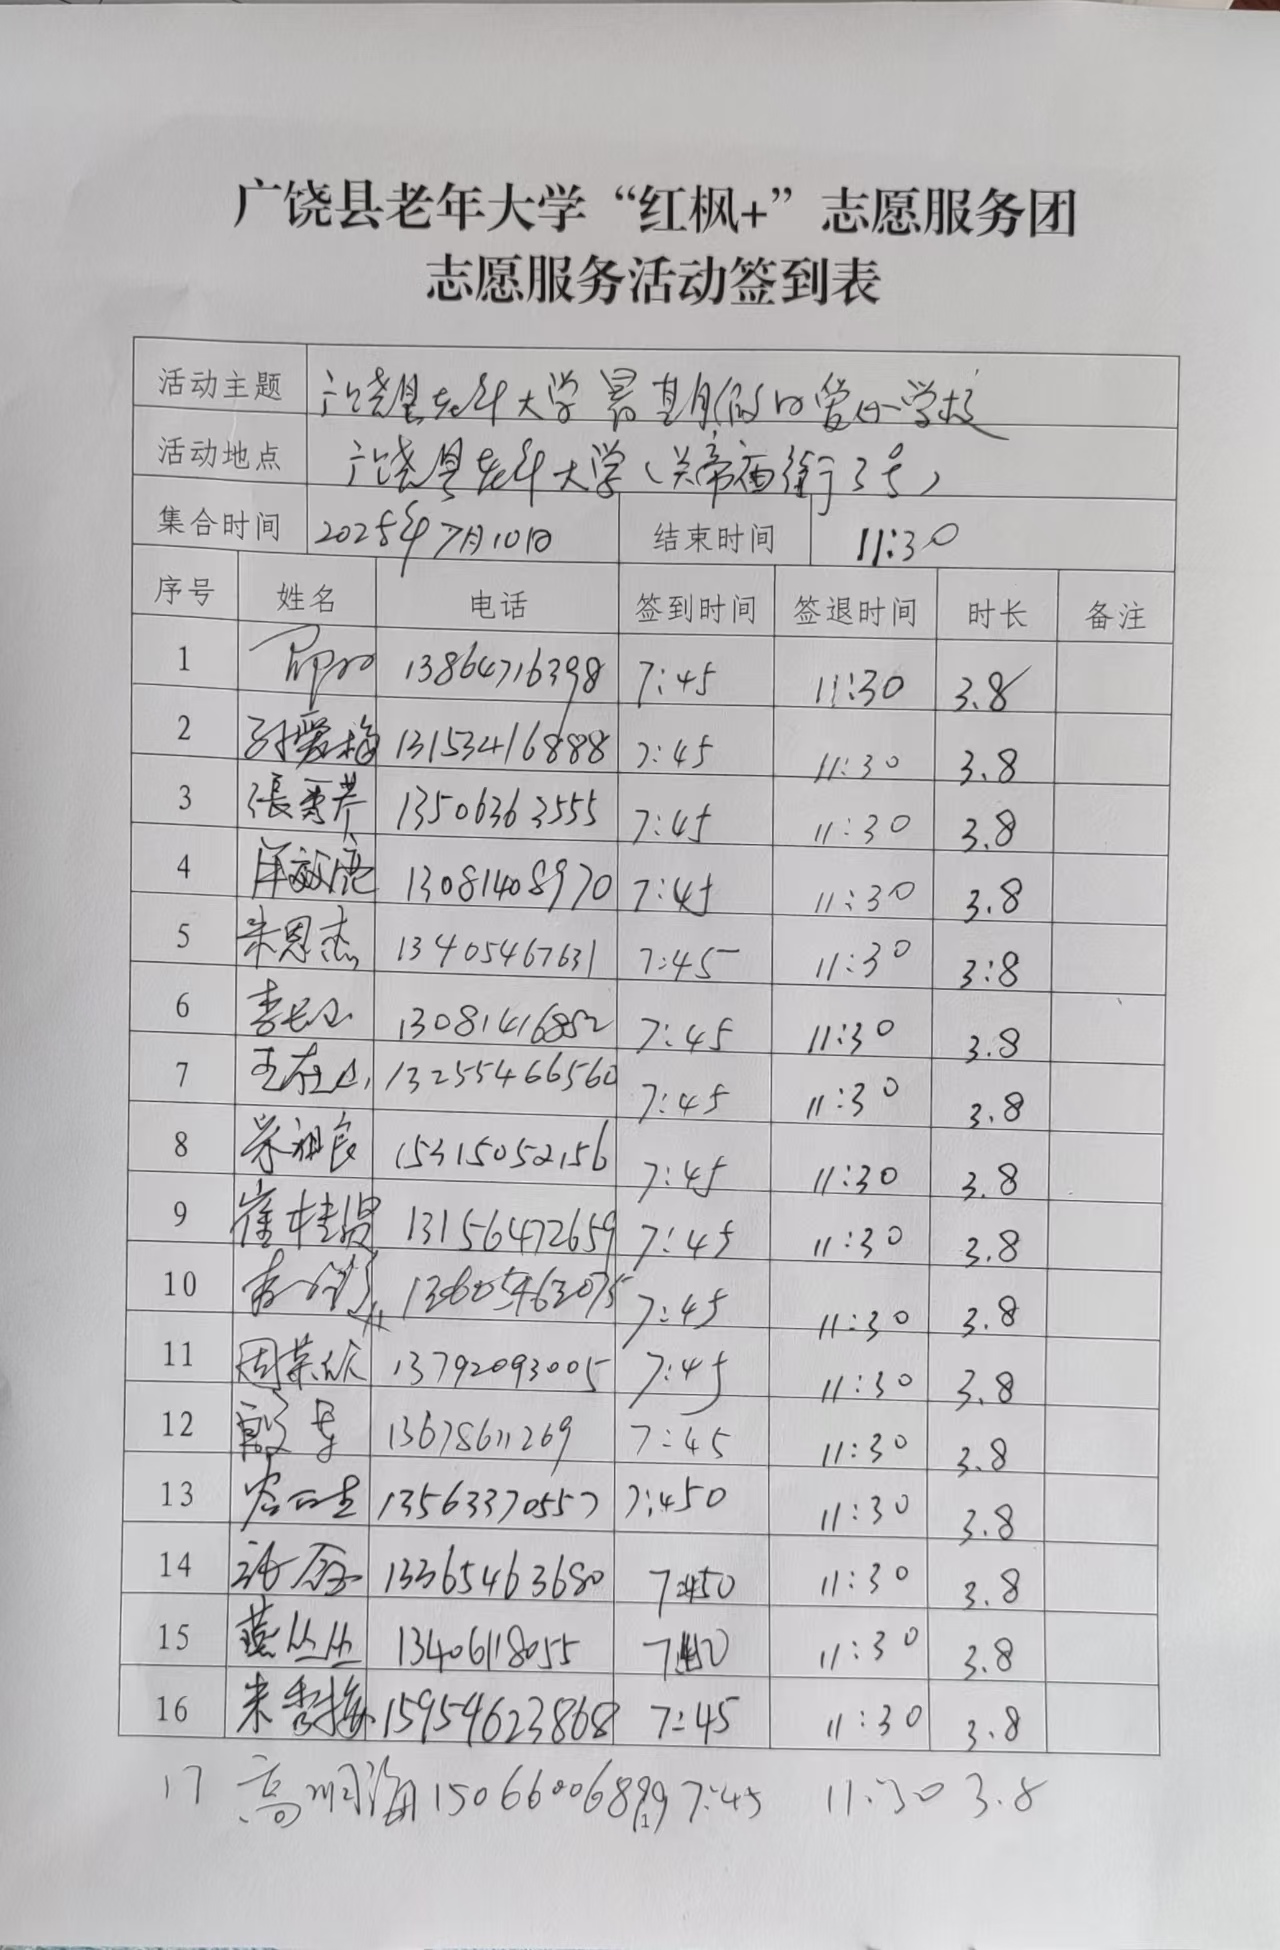 广饶县老年大学“红枫+”志愿服务团
志愿服务活动签到表
活动主题 广饶县老年大学暑期假日爱心学校
活动地点 广饶县老年大学(关帝庙街3号)
集合时间 2025年7月10日 结束时间 11:30
序号 姓名 电话 签到时间 签退时间 时长 备注
1 13864716398 7:45 11:30 3.8
2 孙爱梅 13153416888 7:45 11:30 3.8
3 張秀芹 13506363555 7:45 11:30 3.8
4 13081408970 7:45 11:30 3.8
5 朱恩杰 13405467631 7:45 11:30 3:8
6 李长 13081416852 7:45 11:30 3.8
7 王在山 13255466560 7:45 11:30 3.8
8 宋祖良 15315052156 7:45 11:30 3.8
9 崔桂贤 13156472659 7:45 11:30 3.8
10 7:45 11:30 3.8
11 周荣欣 13792093005 7:45 11:30 3.8
12 13678611269 7:45 11:30 3.8
13 13563370557 7:450 11:30 3.8
14 13365463680 7:450 11:30 3.8
15 燕丛丛 13406118055 11:30 3.8
16 朱秀梅 15954623868 7:45 11:30 3.8
17 高 海 7:45 11:30 3.8